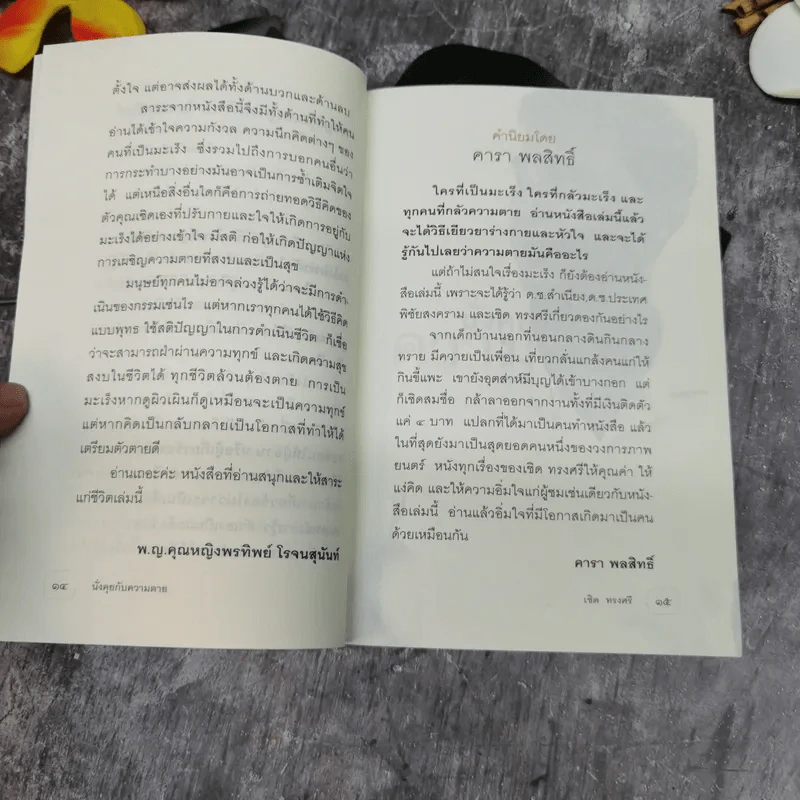 ตั้งใจ แต่อาจส่งผลได้ทั้งด้านบวกและด้านลบ
สาระจากหนังสือนี้จึงมีทั้งด้านที่ทำให้คน
อ่านได้เข้าใจความกังวล ความนึกคิดต่างๆ ของ
คนที่เป็นมะเร็ง ซึ่งรวมไปถึงการบอกคนอื่นว่า
การกระทำบางอย่างมันอาจเป็นการซ้ำเติมจิตใจ
ได้ แต่เหนือสิ่งอื่นใดก็คือการถ่ายทอดวิธีคิดของ
ตัวคุณเชิดเองที่ปรับกายและใจให้เกิดการอยู่กับ
มะเร็งได้อย่างเข้าใจ มีสติ ก่อให้เกิดปัญญาแห่ง
การเผชิญความตายที่สงบและเป็นสุข
มนุษย์ทุกคนไม่อาจล่วงรู้ได้ว่าจะมีการดำ-
เนินของกรรมเช่นไร แต่หากเราทุกคนได้ใช้วิธีคิด
แบบพุทธ ใช้สติปัญญาในการดำเนินชีวิต ก็เชื่อ
ว่าจะสามารถฝ่าผ่านความทุกข์ และเกิดความสุข
สงบในชีวิตได้ ทุกชีวิตล้วนต้องตาย การเป็น
มะเร็งหากดูผิวเผินก็ดูเหมือนจะเป็นความทุกข์
แต่หากคิดเป็นกลับกลายเป็นโอกาสที่ทำให้ได้
เตรียมตัวตายดี
อ่านเถอะค่ะ หนังสือที่อ่านสนุกและให้สาระ
แก่ชีวิตเล่มนี้
พ.ญ.คุณหญิงพรทิพย์ โรจนสุนันท์
๑๔ นั่งคุยกับความตาย
คำนิยมโดย
คารา พลสิทธิ์
ใครที่เป็นมะเร็ง ใครที่กลัวมะเร็ง และ
ทุกคนที่กลัวความตาย อ่านหนังสือเล่มนี้แล้ว
จะได้วิธีเยียวยาร่างกายและหัวใจ และจะได้
รู้กันไปเลยว่าความตายมันคืออะไร
แต่ถ้าไม่สนใจเรื่องมะเร็ง ก็ยังต้องอ่านหนัง-
สือเล่มนี้ เพราะจะได้รู้ว่า ด.ช.สำเนียง,ด.ช.ประเทศ
พิชัยสงคราม และเชิด ทรงศรีเกี่ยวดองกันอย่างไร
จากเด็กบ้านนอกที่นอนกลางดินกินกลาง
ทราย มีควายเป็นเพื่อน เที่ยวกลั่นแกล้งคนแก่ให้
กินขี้แพะ เขายังอุตส่าห์มีบุญได้เข้าบางกอก แต่
ก็เชิดสมชื่อ กล้าลาออกจากงานทั้งที่มีเงินติดตัว
แค่ ๔ บาท แปลกที่ได้มาเป็นคนทำหนังสือ แล้ว
ในที่สุดยังมาเป็นสุดยอดคนหนึ่งของวงการภาพ
ยนตร์ หนังทุกเรื่องของเชิด ทรงศรีให้คุณค่า ให้
แง่คิด และให้ความอิ่มใจแก่ผู้ชมเช่นเดียวกับหนัง-
สือเล่มนี้ อ่านแล้วอิ่มใจที่มีโอกาสเกิดมาเป็นคน
ด้วยเหมือนกัน
คารา พลสิทธิ์
เชิด ทรงศรี ๑๕